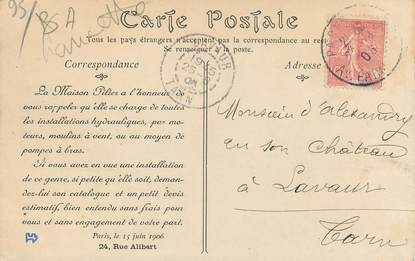 95/ BSA
Carte Postale
Tous les pays étrangers n'acceptent pas la correspondance au re
Se renseigner à la po
Correspondance
Adresse
La Maison Pilter a l'honneur
vous rappeler qu'elle se charge de toutes
les installations hydrauliques, par mo-
teurs, moulins à vent, ou au moyen de
pompes à bras.
Si vous avez en vue une installation
de ce genre, si petite qu'elle soit, deman-
dez-lui son catalogue et un petit devis
estimatif, bien entendu sans frais pour
vous et sans engagement de votre part.
Paris, le 15 juin 1906
24, Rue Alibert
Monsieur d'Alexandry
en son Château
à Lavaur
Tarn